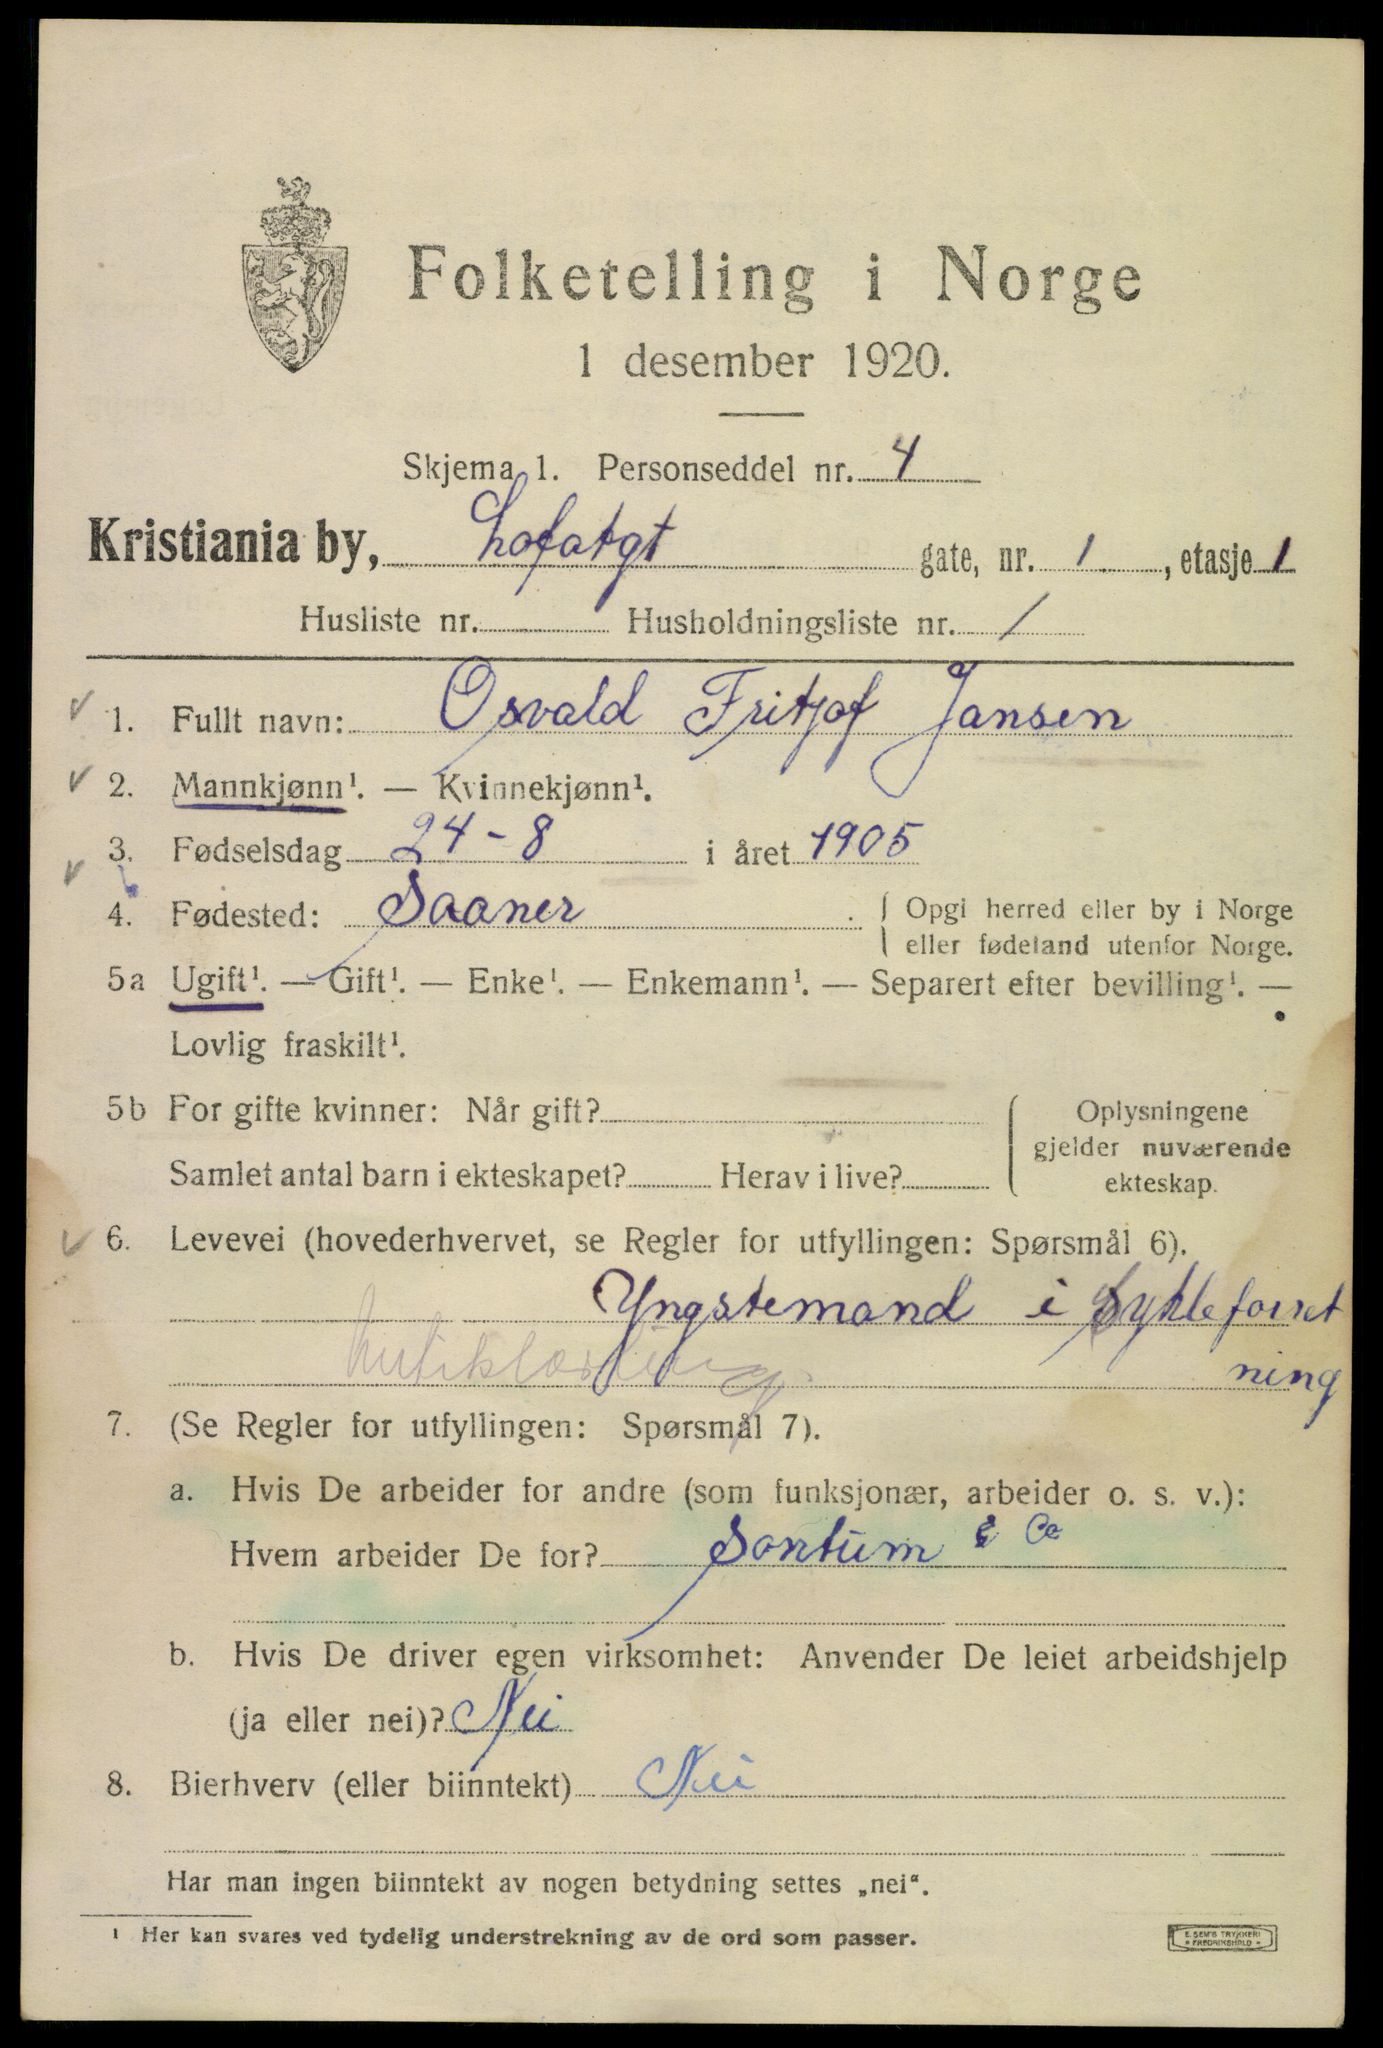 Folketelling i Norge
1 desember 1920.
Skjema 1. Personseddel nr. 4
Kristiania by, Lofotgt gate, nr. 1, etasje 1
Husliste nr. Husholdningsliste nr. 1
1. Fullt navn: Osvald Fritjof Jansen
2. Mannkjønn¹. — Kvinnekjønn¹.
3. Fødselsdag 24-8 i året 1905
4. Fødested: Saaner { Opgi herred eller by i Norge
eller fødeland utenfor Norge.
5a Ugift¹. — Gift¹. — Enke¹. — Enkemann¹. — Separert efter bevilling¹. —
Lovlig fraskilt¹.
5b For gifte kvinner: Når gift? { Oplysningene
gjelder nuværende
Samlet antal barn i ekteskapet? Herav i live? ekteskap.
6. Levevei (hovederhvervet, se Regler for utfyllingen: Spørsmål 6).
Yngstemand i Sykleforret
ning
7. (Se Regler for utfyllingen: Spørsmål 7).
a. Hvis De arbeider for andre (som funksjonær, arbeider o. s. v.):
Hvem arbeider De for? Sontum & Co
b. Hvis De driver egen virksomhet: Anvender De leiet arbeidshjelp
(ja eller nei)? Nei
8. Bierhverv (eller biinntekt) Nei
Har man ingen biinntekt av nogen betydning settes „nei“.
¹ Her kan svares ved tydelig understrekning av de ord som passer.
E. SEM'S TRYKKERI
FREDRIKSHALD